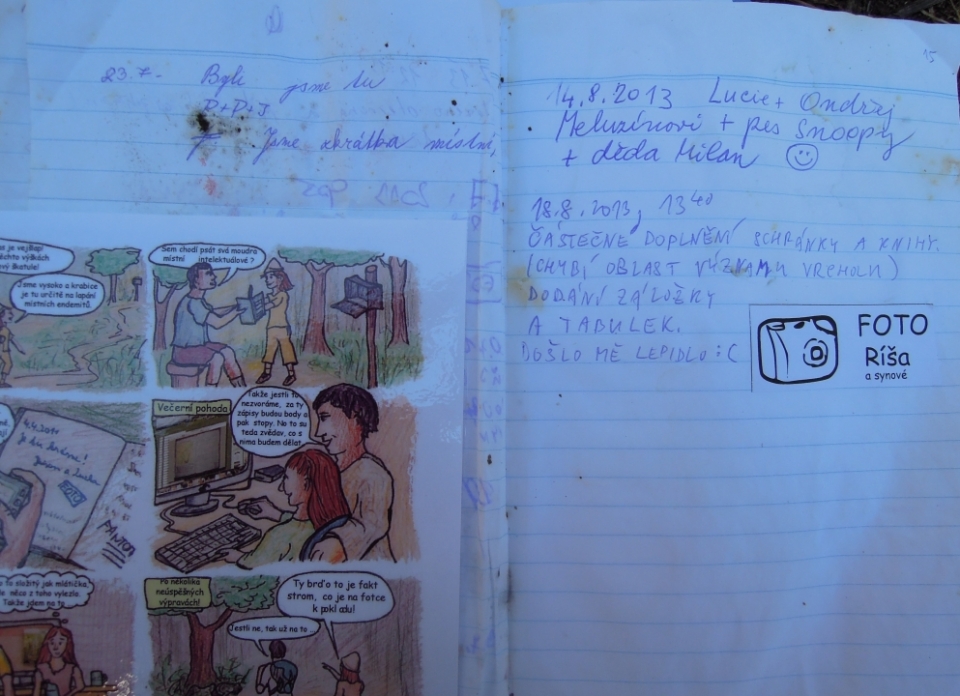 23.7. Byli jsme tu
P+P+J
Jsme zkrátka místní,
as je vejšlap
těchto výškách
ový škatule!
Jsme vysoko a krabice
je tu určitě na lapání
místních endemitů.
Sem chodí psát svá moudra
místní intelektuálové?
4.4.2011
Večerní pohoda
Takže jestli to
nezvoráme, za ty
zápisy budou body a
pak stopy. No to su
teda zvědav, co s
nima budem dělat.
to složitý jak mlátička,
něco z toho vylezlo.
Takže jdem na to
Po několika
neúspěšných
výpravách!
Ty brďo to je fakt
strom, co je na fotce
k pokladu!
Jestli ne, tak už na to ...
15
14.8.2013 Lucie + Ondřej
Meluzínovi + pes Snoopy
+ děda Milan
18.8.2013, 13 40
ČÁSTEČNÉ DOPLNĚNÍ SCHRÁNKY A KNIHY.
(CHYBÍ OBLAST VÝZNAMU VRCHOLU)
DODÁNÍ ZÁLOŽKY
A TABULEK.
DOŠLO MĚ LEPIDLO :(
FOTO
Ríša
a synové